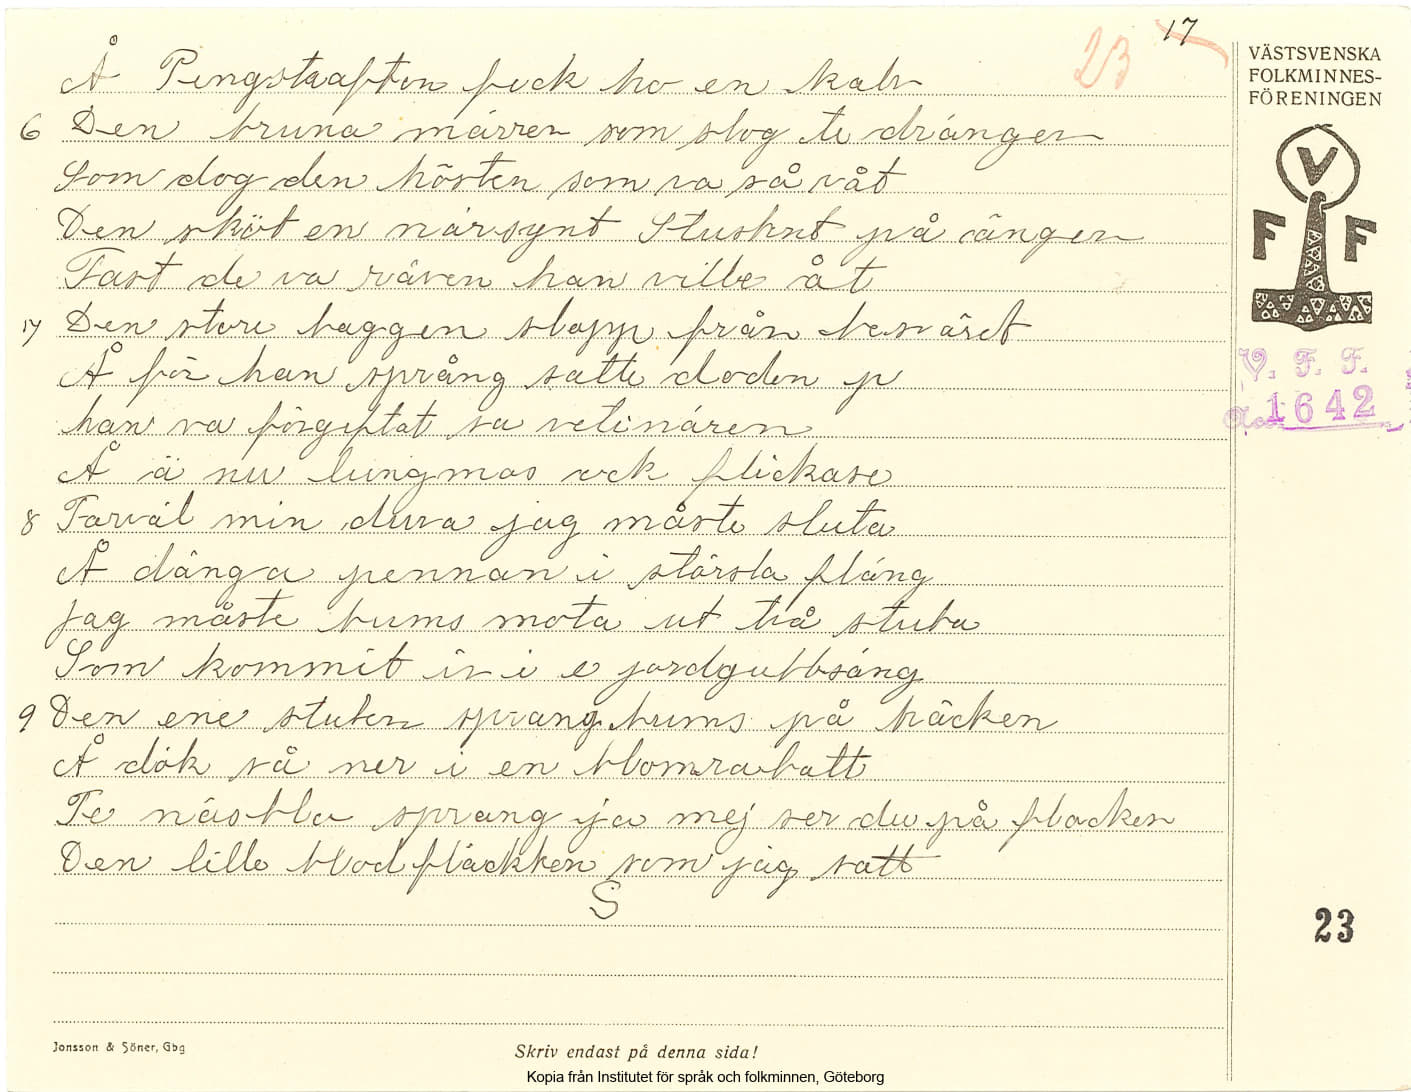 17
23
VÄSTSVENSKA
FOLKMINNES-
FÖRENINGEN
V
F F
V. F. F.
1642
Å Pingstaafton feck ho en kalv
6 Den bruna märren som slog te drängen
Som dog den hösten som va så våt
Den sköt en närsynt Stushnt på ängen
Fast de va räven han ville åt
17 Den store baggen slapp från besväret
Å för han språng satte doden p
han va förgiftat sa vetinären
Å ä nu lungmos ock flickase
8 Farväl min duva jag måste sluta
Å dänga pennan i största fläng
jag måste bums mota ut två stuta
Som kommit in i e jordgubbsäng
9 Den ene stuten sprang bums på bäcken
Å dök så ner i en blomrabatt
Te näsbla sprang ja mej ser du på flacken
Den lille blodfläckken som jag satt
S
23
Jonsson & Söner, Gbg
Skriv endast på denna sida!
Kopia från Institutet för språk och folkminnen, Göteborg